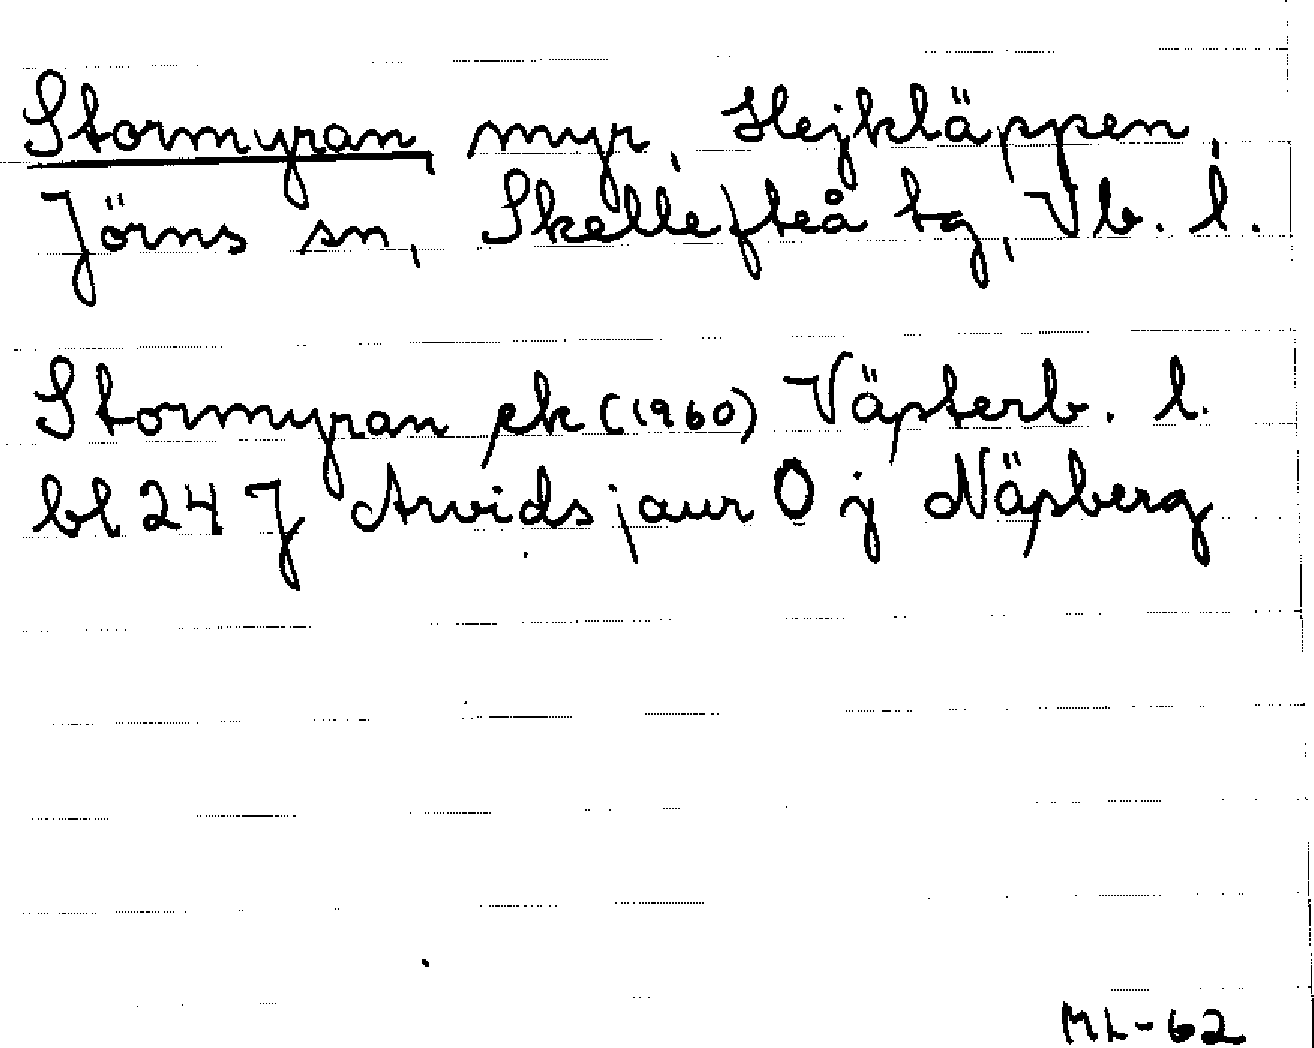 Stormyran, myr, Hejkläppen,
Jörns sn, Skellefteå tg, Vb. l.
Stormyran ek (1960) Västerb. l.
bl 24 J Arvidsjaur O j Näsberg
ML-62